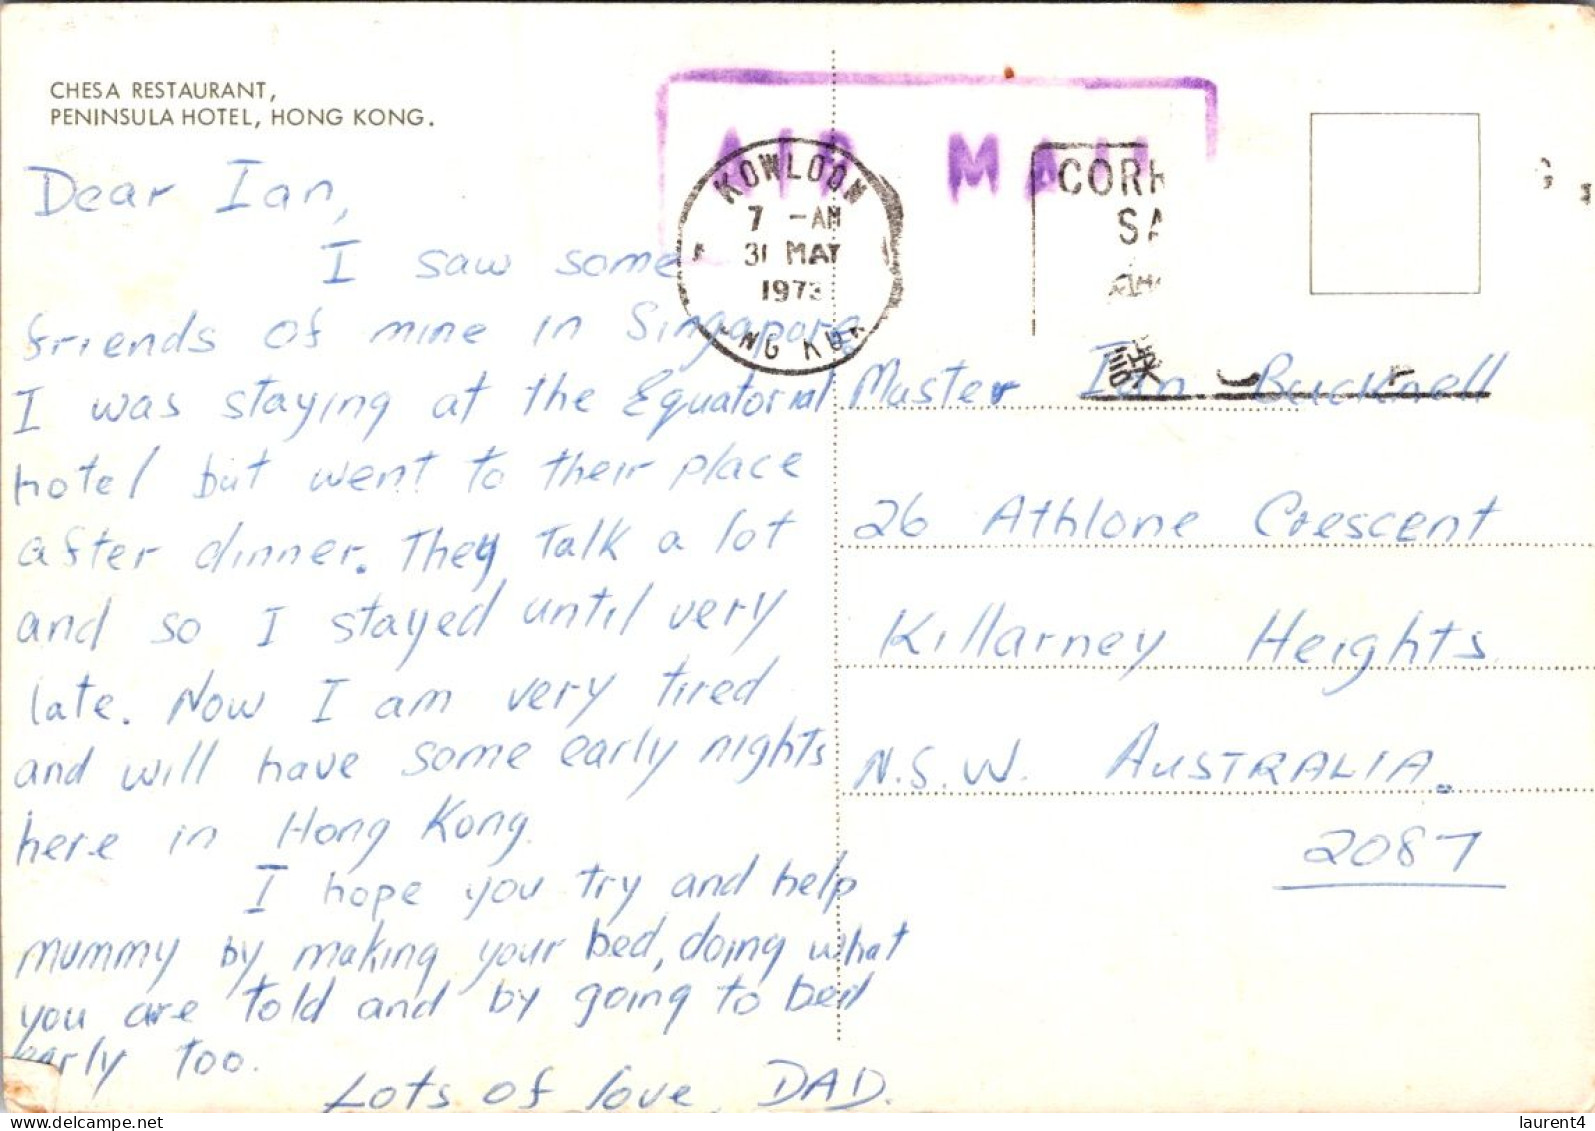 CHESA RESTAURANT,
PENINSULA HOTEL, HONG KONG.
AIR MAIL
KOWLOON
7 - AM
31 MAY
1973
CORR
SA
Dear Ian,
I saw some
friends of mine in Singapore.
I was staying at the Equatorial
hotel but went to their place
after dinner. They talk a lot
and so I stayed until very
late. Now I am very tired
and will have some early nights
here in Hong Kong.
I hope you try and help
mummy by making your bed, doing what
you are told and by going to bed
early too.
Lots of love, DAD.
Master Ian Bucknell
26 Athlone Crescent
Killarney Heights
N.S.W. AUSTRALIA.
2087
laurent4